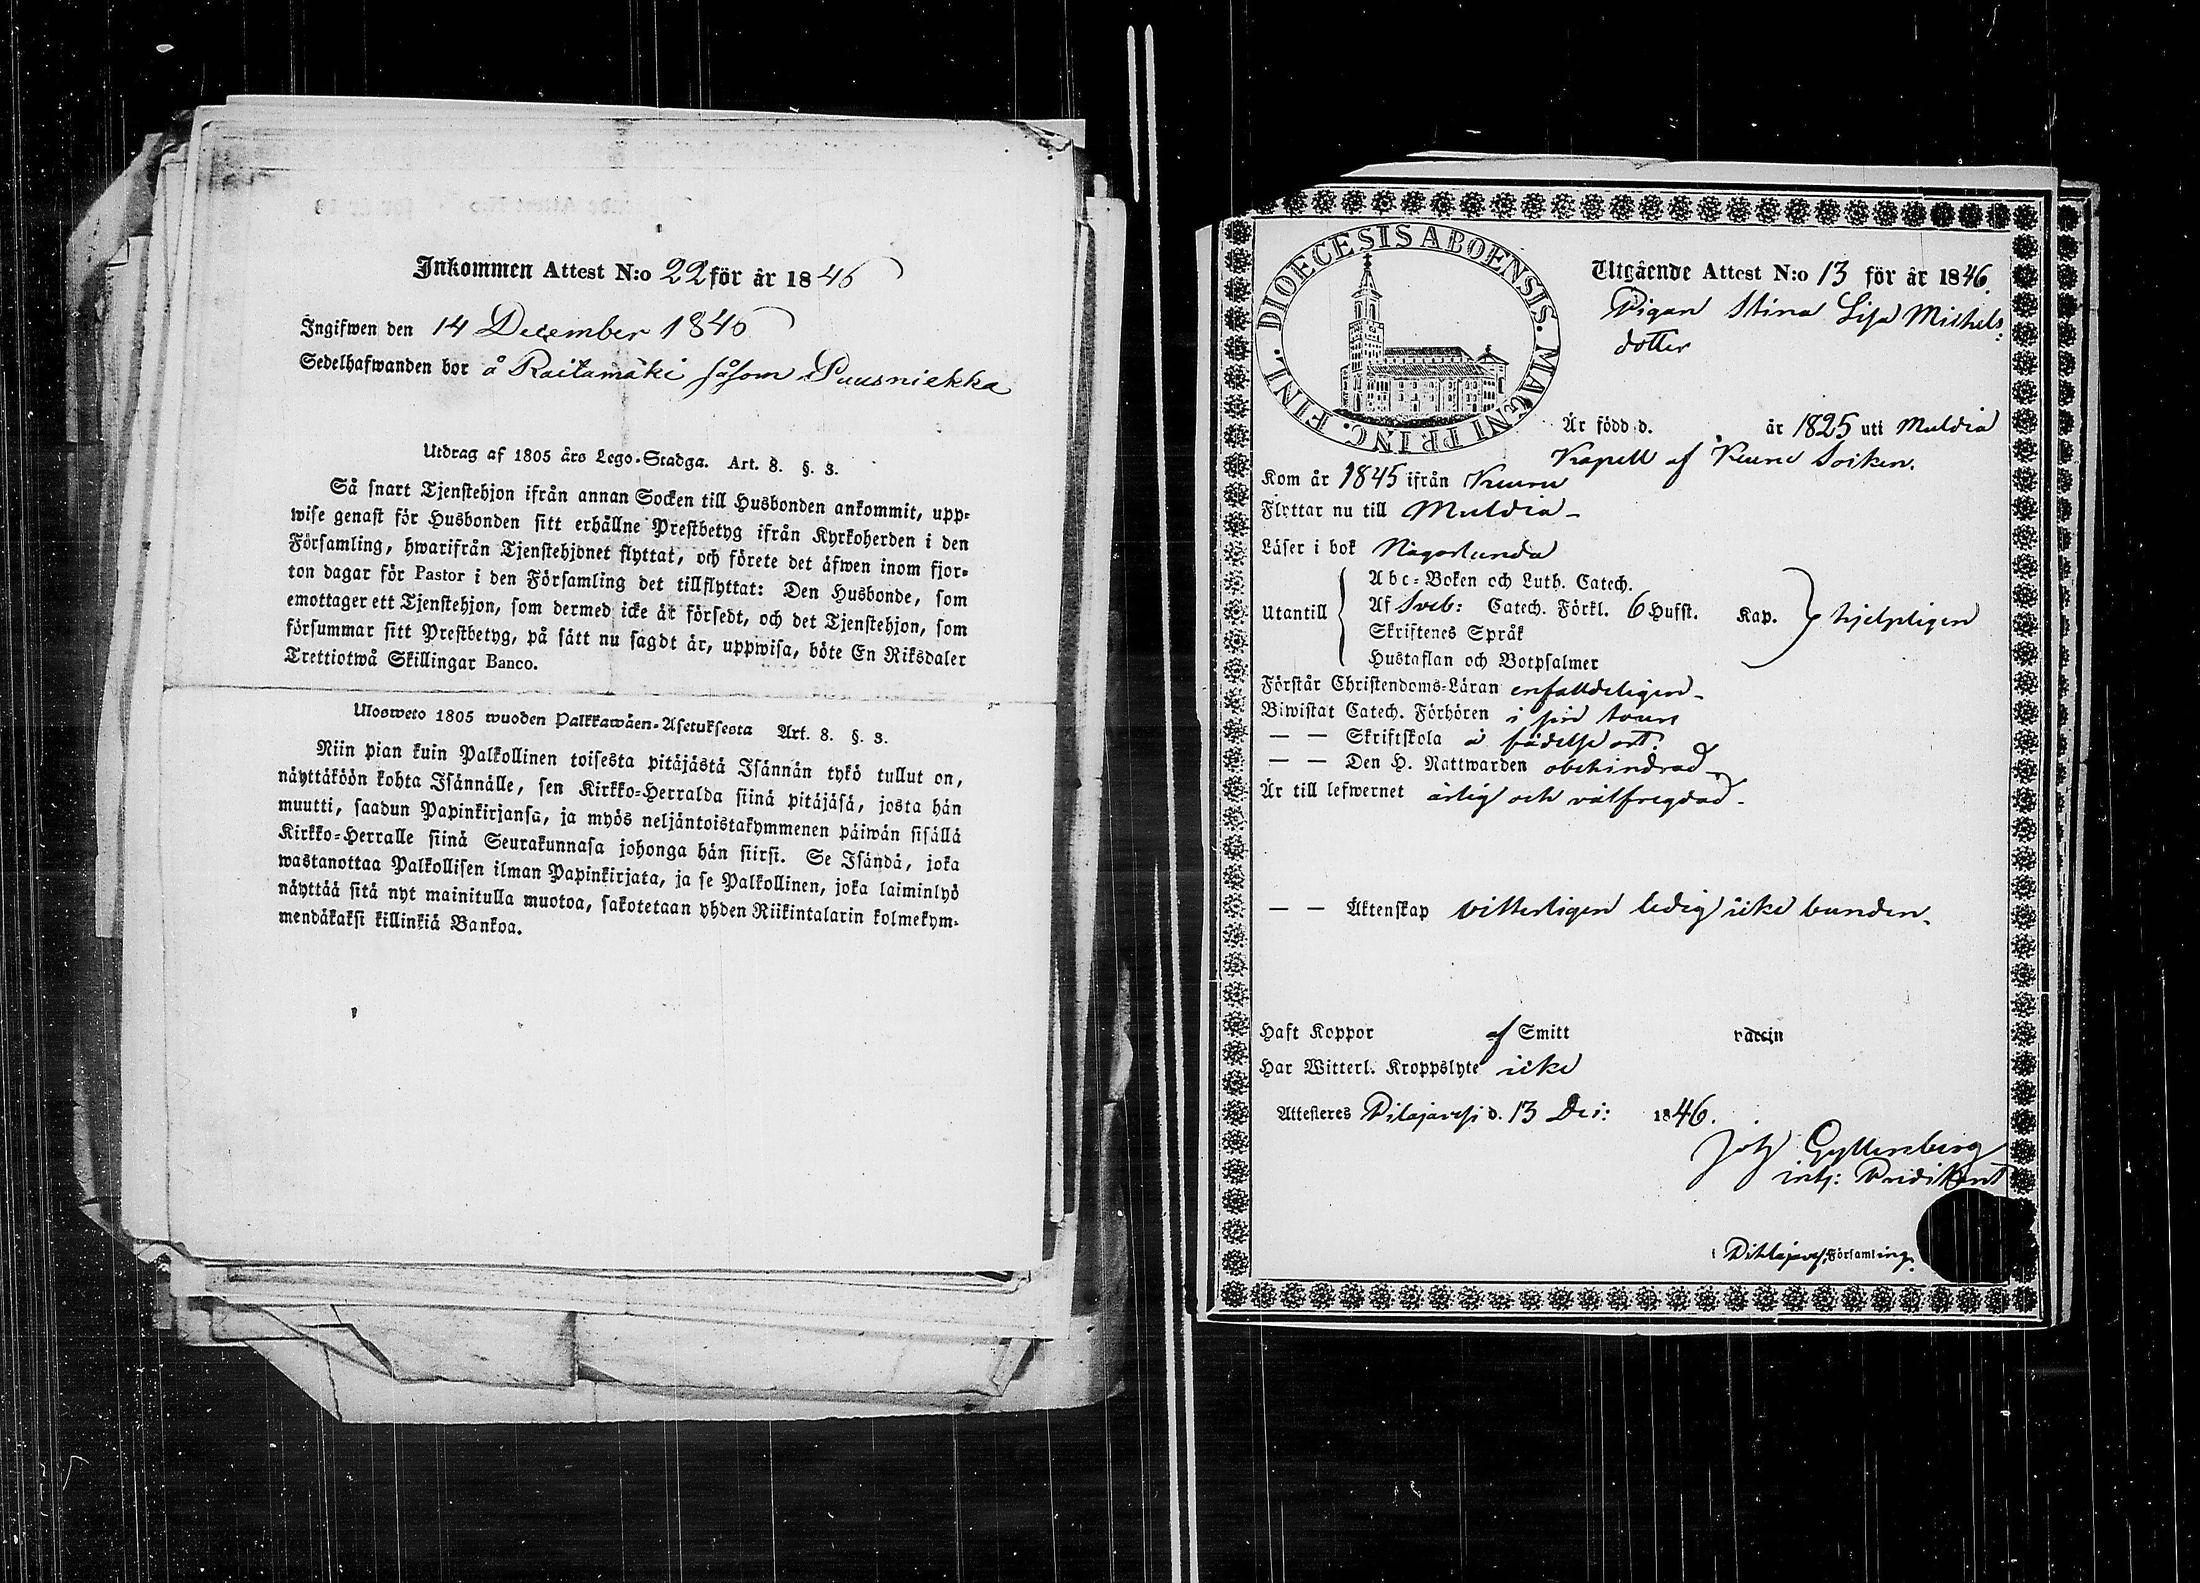 Inkommen Attest N:o 22 för år 1846
Ingifwen den 14 December 1846
Sedelhafwanden bor å Raitamäki såsom Puusniekka
Utdrag af 1805 års Lego-Stadga. Art. 8. §. 3.
Så snart Tjenstehjon ifrån annan Socken till Husbonden ankommit, upp-
wise genast för Husbonden sitt erhållne Prestbetyg ifrån Kyrkoherden i den
Församling, hwarifrån Tjenstehjonet flyttat, och förete det äfwen inom fjor-
ton dagar för Pastor i den Församling det tillflyttat: Den Husbonde, som
emottager ett Tjenstehjon, som dermed icke är försedt, och det Tjenstehjon, som
försummar sitt Prestbetyg, på sätt nu sagdt är, uppwisa, böte En Riksdaler
Trettiotwå Skillingar Banco.
Ulosweto 1805 wuoden Palkkawäen-Asetuksesta Art. 8. §. 3.
Niin pian kuin Palkollinen toisesta pitäjästä Isännän tykö tullut on,
näyttäköön kohta Isännälle, sen Kirkko-Herralda siinä pitäjäsä, josta hän
muutti, saadun Papinkirjansa, ja myös neljäntoistakymmenen päiwän sisällä
Kirkko-Herralle siinä Seurakunnasa johonga hän siirsi. Se Isändä, joka
wastanottaa Palkollisen ilman Papinkirjata, ja se Palkollinen, joka laiminlyö
näyttää sitä nyt mainitulla muotoa, sakotetaan yhden Riikintalarin kolmekym-
mendäkaksi killinkiä Bankoa.
FINL. DIOECESIS ABOENSIS. MAGNI PRINC.
Utgående Attest N:o 13 för år 1846.
Pigan Stina Lisa Michels
dotter
Är född d. år 1825 uti Muldia
Kapell af Keuru Socken.
Kom år 1845 ifrån Keuru
Flyttar nu till Muldia -
Läser i bok Någorlunda
Abc-Boken och Luth. Catech.
Utantill Af Sveb: Catech. Förkl. 6 Hufst. Kap. hjelpligen
Skriftenes Språk
Hustaflan och Botpsalmer
Förstår Christendoms-Läran enfalldeligen -
Biwistat Catech. Förhören i sin tour
— — Skriftskola å födelse ort.
— — Den H. Nattwarden obehindrad
Är till lefwernet ärlig och välfregdad -
— — Äktenskap vitterligen ledig icke bunden.
Haft Koppor af Smitt vaccin
Har Witterl. Kroppslyte icke
Attesteres Pilajavesi d. 13 Dec: 1846.
Joh Gyllenberg
Predikant
i Församling.